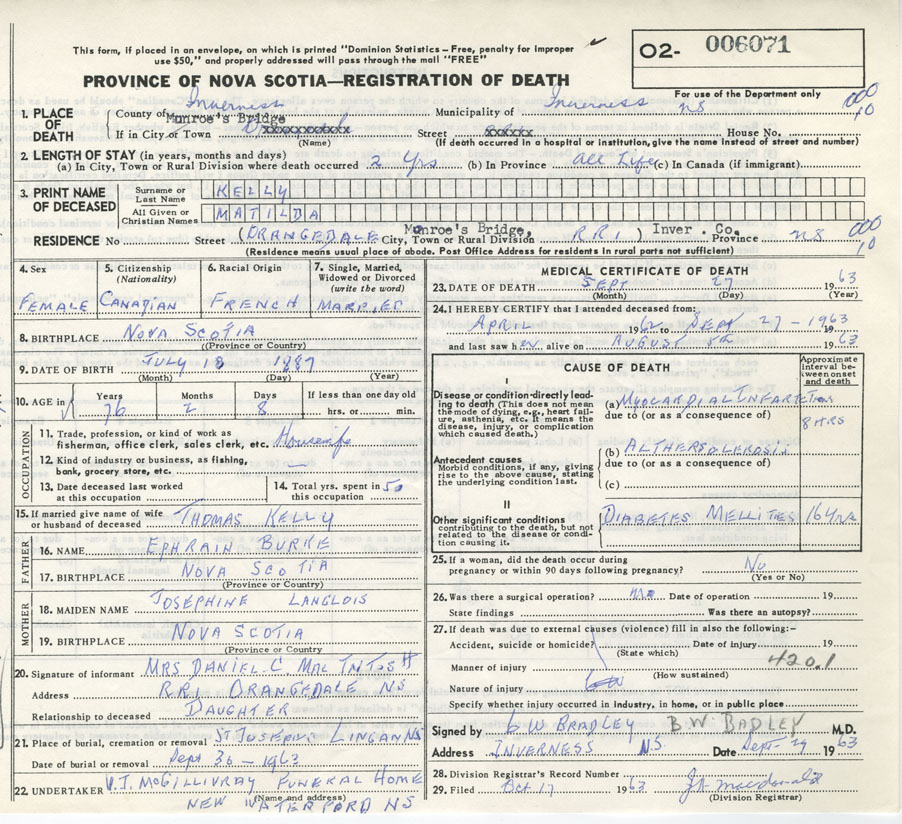 This form, if placed in an envelope, on which is printed "Dominion Statistics – Free, penalty for improper
use $50," and properly addressed will pass through the mail "FREE"
O2- 006071
PROVINCE OF NOVA SCOTIA—REGISTRATION OF DEATH
For use of the Department only
1. PLACE OF DEATH
County of Inverness Municipality of Inverness NS 000 10
Monroe's Bridge
If in City or Town xxxxxxxxxx Street xxxxxx House No.
(Name) (If death occurred in a hospital or institution, give the name instead of street and number)
2. LENGTH OF STAY (in years, months and days)
(a) In City, Town or Rural Division where death occurred 2 Yrs (b) In Province all Life (c) In Canada (if immigrant)
3. PRINT NAME OF DECEASED
Surname or Last Name KELLY
All Given or Christian Names MATILDA
Monroe's Bridge, Inver. Co.
RESIDENCE No Street (ORANGEDALE City, Town or Rural Division RR1) Province NS 000 10
(Residence means usual place of abode. Post Office Address for residents in rural parts not sufficient)
4. Sex FEMALE
5. Citizenship (Nationality) CANADIAN
6. Racial Origin FRENCH
7. Single, Married, Widowed or Divorced (write the word) MARRIED
8. BIRTHPLACE NOVA SCOTIA
(Province or Country)
9. DATE OF BIRTH JULY 18 1887
(Month) (Day) (Year)
10. AGE in Years 76 Months 2 Days 8 If less than one day old hrs. or min.
OCCUPATION
11. Trade, profession, or kind of work as fisherman, office clerk, sales clerk, etc. Housewife
12. Kind of industry or business, as fishing, bank, grocery store, etc. —
13. Date deceased last worked at this occupation
14. Total yrs. spent in this occupation 50
15. If married give name of wife or husband of deceased THOMAS KELLY
FATHER
16. NAME EPHRAIN BURKE
17. BIRTHPLACE NOVA SCOTIA
(Province or Country)
MOTHER
18. MAIDEN NAME JOSEPHINE LANGLOIS
19. BIRTHPLACE NOVA SCOTIA
(Province or Country)
20. Signature of informant MRS DANIEL C. MAC INTOSH
Address RR1 ORANGEDALE NS
Relationship to deceased DAUGHTER
21. Place of burial, cremation or removal ST JOSEPH, LINGAN NS
Date of burial or removal Sept 30 – 1963
22. UNDERTAKER V.J. McGILLIVRAY FUNERAL HOME
(Name and address)
NEW WATERFORD NS
MEDICAL CERTIFICATE OF DEATH
23. DATE OF DEATH SEPT 27 1963
(Month) (Day) (Year)
24. I HEREBY CERTIFY that I attended deceased from:
APRIL 1962 to SEPT 27 – 1963
and last saw her alive on AUGUST 1963
CAUSE OF DEATH
Approximate interval between onset and death
I
Disease or condition directly leading to death (This does not mean the mode of dying, e.g., heart failure, asthenia, etc. It means the disease, injury, or complication which caused death.)
(a) MYOCARDIAL INFARCTION 8 HRS
due to (or as a consequence of)
Antecedent causes
Morbid conditions, if any, giving rise to the above cause, stating the underlying condition last.
(b) ALTHEROSCLEROSIS
due to (or as a consequence of)
(c)
II
Other significant conditions
contributing to the death, but not related to the disease or condition causing it.
DIABETES MELLITES 16 yrs
25. If a woman, did the death occur during pregnancy or within 90 days following pregnancy? No
(Yes or No)
26. Was there a surgical operation? no Date of operation 19
State findings Was there an autopsy?
27. If death was due to external causes (violence) fill in also the following:–
Accident, suicide or homicide? Date of injury 19
(State which)
Manner of injury 420.1
(How sustained)
Nature of injury
Specify whether injury occurred in industry, in home, or in public place
Signed by B W BRADLEY B W BADLEY M.D.
Address INVERNESS N.S. Date Sept. 29 1963
28. Division Registrar's Record Number
29. Filed Oct 17 1963 macdonald
(Division Registrar)